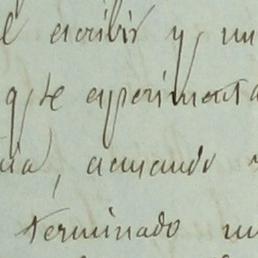 el escribir y un
qte esperimenta
ia, acusando
terminado un